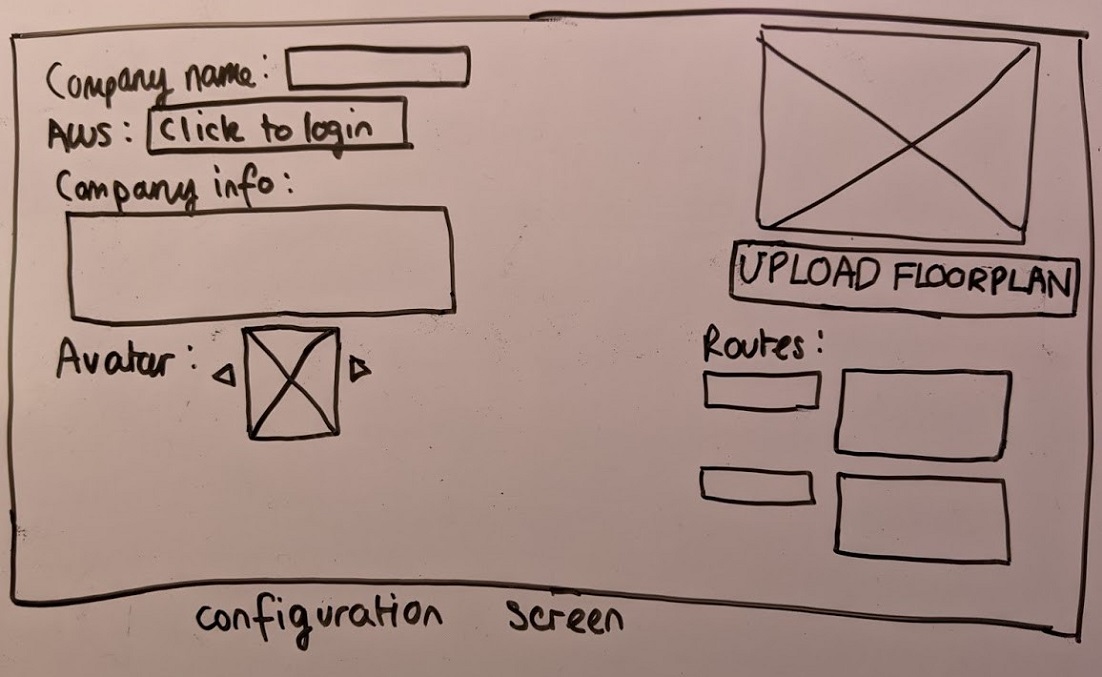 Company name:
AWS: Click to login
Company info:
Avatar:
UPLOAD FLOORPLAN
Routes:
configuration screen